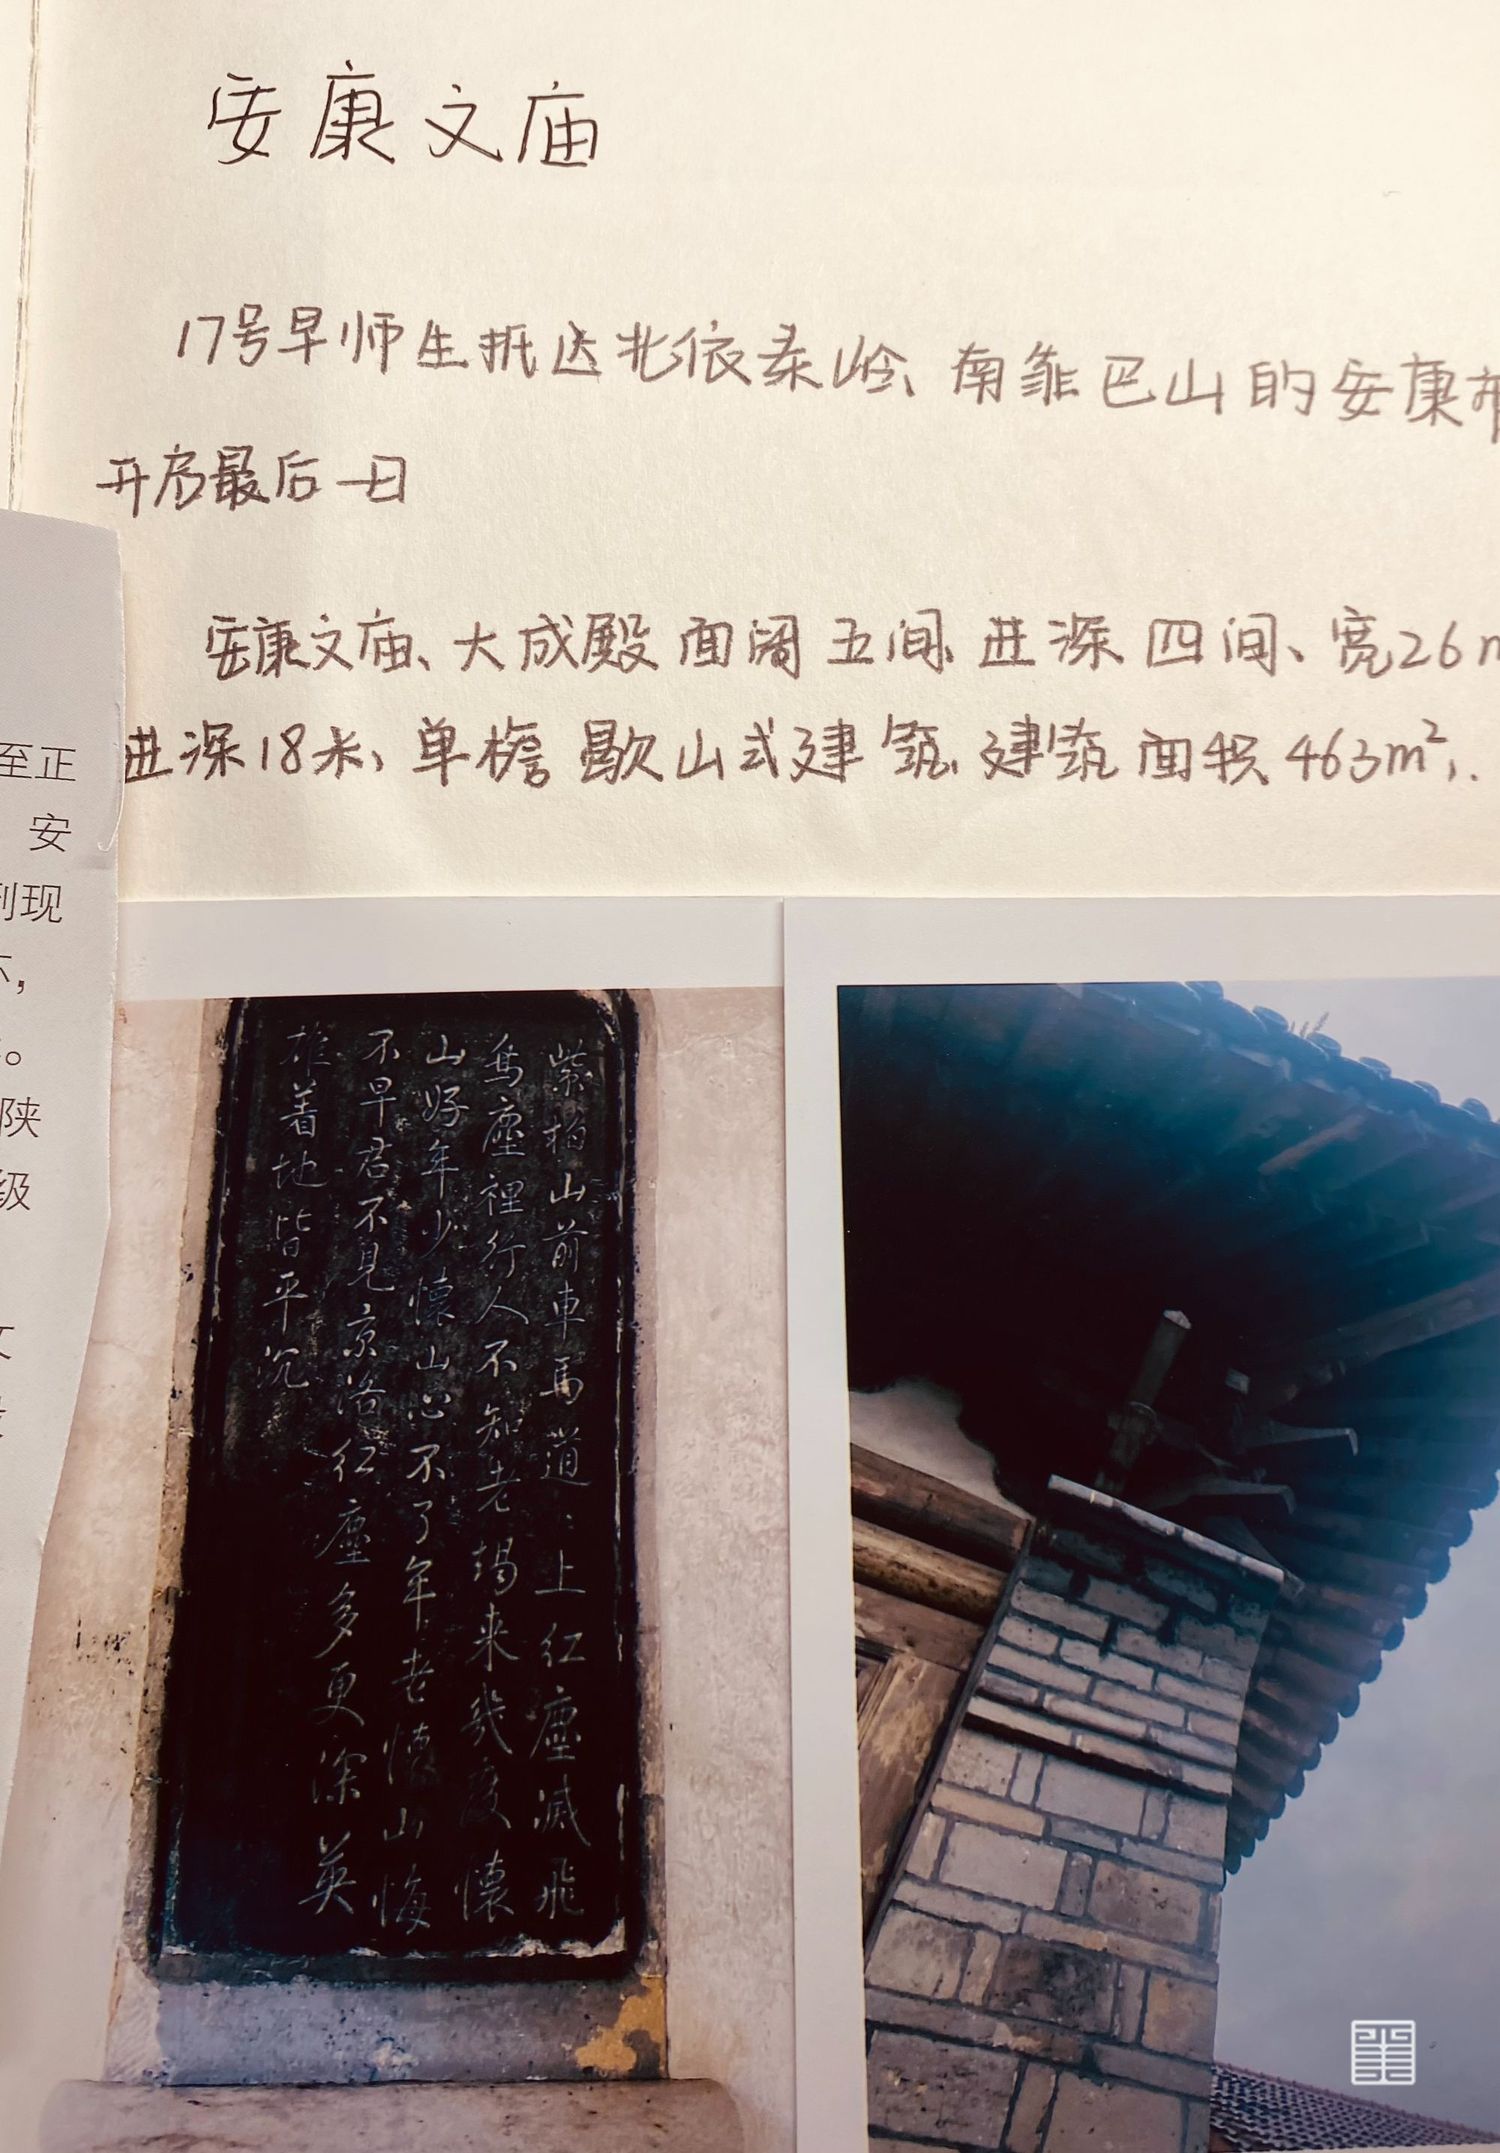 安康文庙
17号早师生抵达北依秦岭、南靠巴山的安康市
开启最后一日
安康文庙、大成殿面阔五间、进深四间、宽26m
进深18米、单檐歇山式建筑、建筑面积463m²,.
至正
安
到现
陕
级
紫柏山前車馬道道上红塵滅飛
鳥塵裡行人不知老朅来幾度懷
山好年少懷山心不了年老懷山悔
不早君不見京洛红塵多更深英
雄着地皆平沉